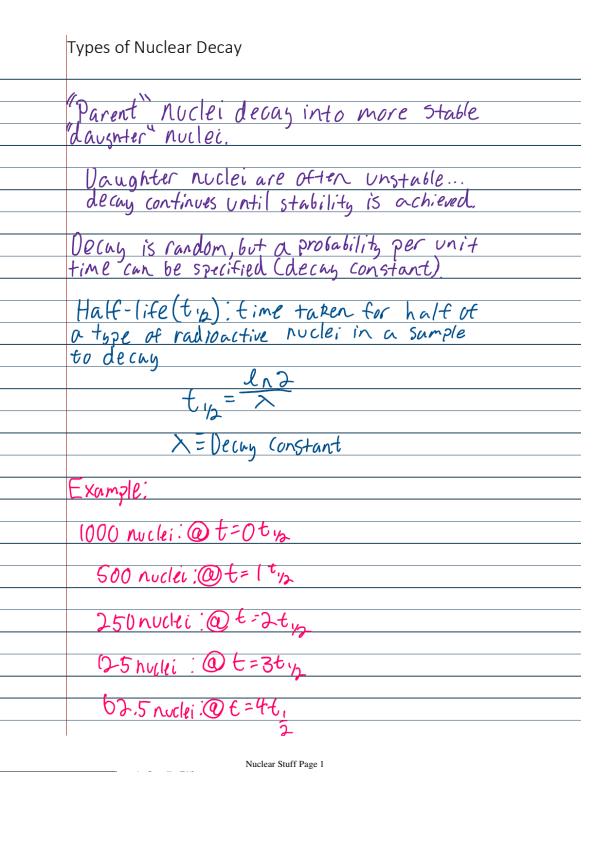 Types of Nuclear Decay
"Parent" nuclei decay into more stable
"daughter" nuclei.
Daughter nuclei are often unstable...
decay continues until stability is achieved.
Decay is random, but a probability per unit
time can be specified (decay constant).
Half-life (t1/2): time taken for half of
a type of radioactive nuclei in a sample
to decay
t1/2 = ln2/λ
λ = Decay Constant
Example:
1000 nuclei: @ t=0t1/2
500 nuclei: @ t=1t1/2
250 nuclei: @ t=2t1/2
125 nuclei: @ t=3t1/2
62.5 nuclei: @ t=4t1/2
Nuclear Stuff Page 1